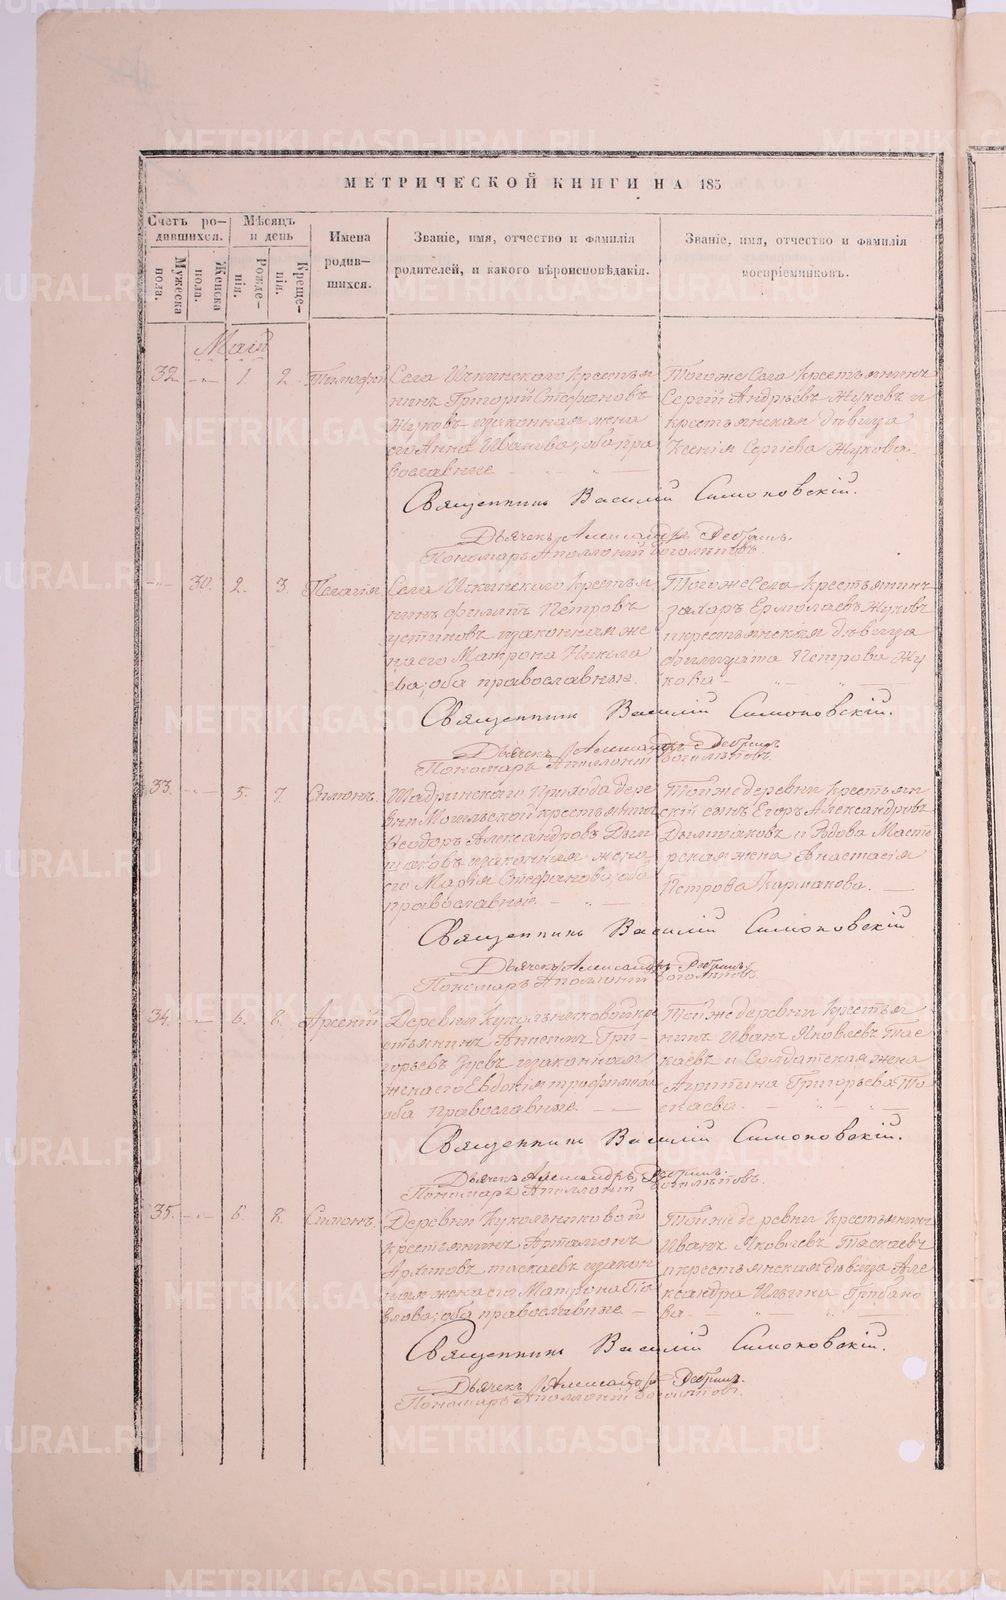 МЕТРИЧЕСКОЙ КНИГИ НА 185
Счетъ ро-
дившихся.
Мѣсяцъ
и день
Имена
родив-
шихся.
Званіе, имя, отчество и фамилія
родителей, и какого вѣроисповѣданія.
Званіе, имя, отчество и фамилія
воспріемниковъ.
Мужеска
пола.
Женска
пола.
Рожде-
нія.
Креще-
нія.
Май
32 1. 2. Тимофей
Села Крестья
нинъ Григорій Стефановъ
Жуковъ изаконная жена
его Анна Иванова; оба пра
вославные
Тогоже Села Крестьянинъ
Сергій Андрѣевъ Жуковъ и
крестьянская дѣвица
Ксенія Сергіева Жукова.
Священникъ Василій Симоновскій.
Дьячекъ Александръ
Пономарь Аполлоній Боголѣповъ.
30. 2. 3. Пелагія
Села Крестья
нинъ Филитъ Петровъ
Устиновъ изаконная же
на его Матрона Никола
ева; оба православные.
Тогоже Села Крестьянинъ
Захаръ Ермолаевъ Жуковъ
икрестьянская дѣвица
Филицата Петрова Жу
кова
Священникъ Василій Симоновскій.
Дьячекъ Александръ
Пономарь Аполлоній Боголѣповъ.
33. 5. 7. Симонъ.
Шадринскаго Прихода дере
вни крестьянинъ
Ѳеодоръ Александровъ
изаконная жена
его Марія Стефанова; оба
православные.
Тойже деревни Крестьян
скій сынъ Егоръ Александровъ
и Масте
рская жена Анастасія
Петрова
Священникъ Василій Симоновскій
Дьячекъ Александръ
Пономарь Аполлоній Боголѣповъ.
34. 6. 8. Арсеній
Деревни Кукольниковой кре
стьянинъ Анисимъ Гри-
горьевъ изаконная
жена его Евдокія
оба православные.
Тойже деревни Крестья
нинъ Иванъ Яковлевъ Тас
каевъ и Солдатская жена
Григорьева Та
скаева.
Священникъ Василій Симоновскій.
Дьячекъ Александръ
Пономарь Аполлоній Боголѣповъ.
35. 6. 8. Симонъ.
Деревни Кукольниковой
Крестьянинъ Артамонъ
Таскаевъ изакон
ная жена его Матрона Па
влова; оба православные
Тойже деревни Крестьянинъ
Иванъ Яковлевъ Таскаевъ
икрестьянская дѣвица Але
ксандра Ильина Грибано
ва
Священникъ Василій Симоновскій.
Дьячекъ Александръ
Пономарь Аполлоній Боголѣповъ.
METRIKI.GASO-URAL.RU